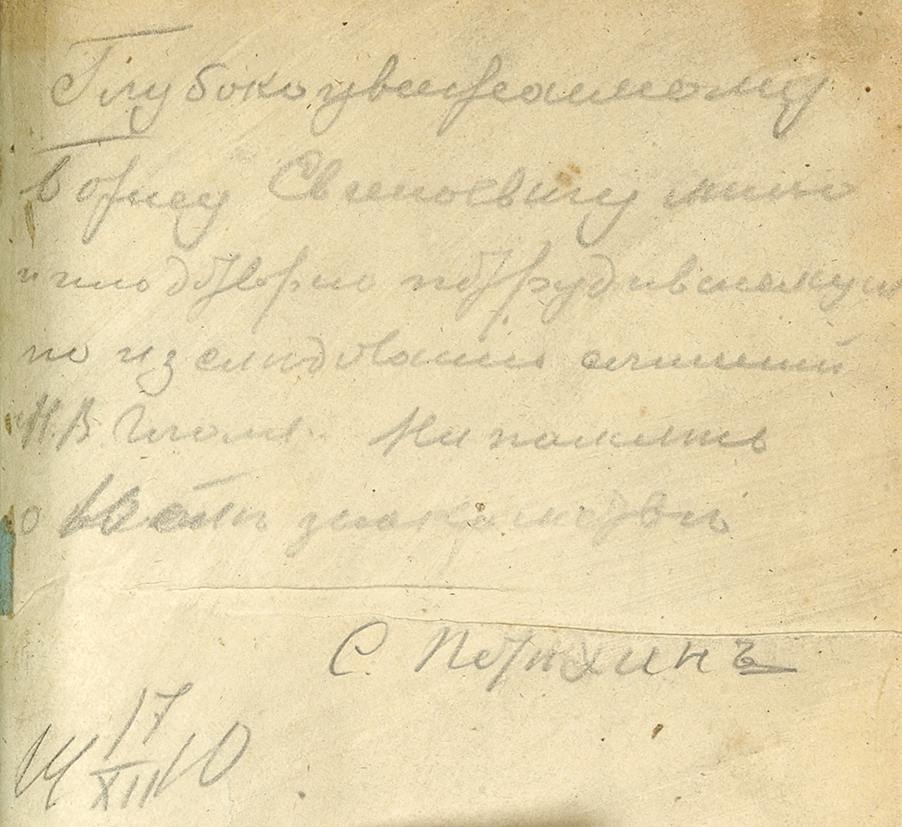 Глубокоуважаемому
Борису Евгеньевичу много
и плодотворно потрудившемуся
по изследованию сочинений
Н.В. Гоголя. На память
о знакомстве
С.
17
XII 10